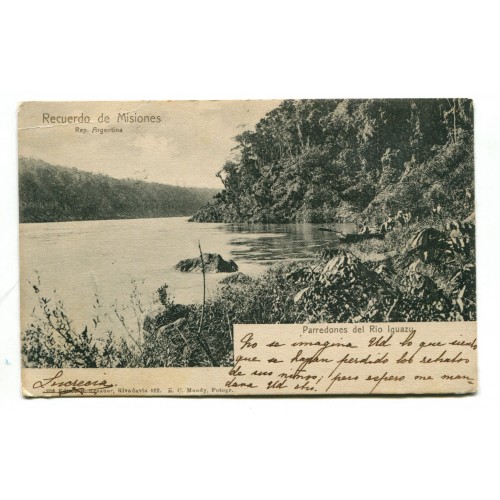 Recuerdo de Misiones
Rep. Argentina
Parredones del Rio Iguazu
No se imagina Ud lo que siento
que se hayan perdido los retratos
de sus niños; pero espero me man-
dara Ud otro.
Lucrecia.
Rivadavia E. C. Moody, Fotogr.